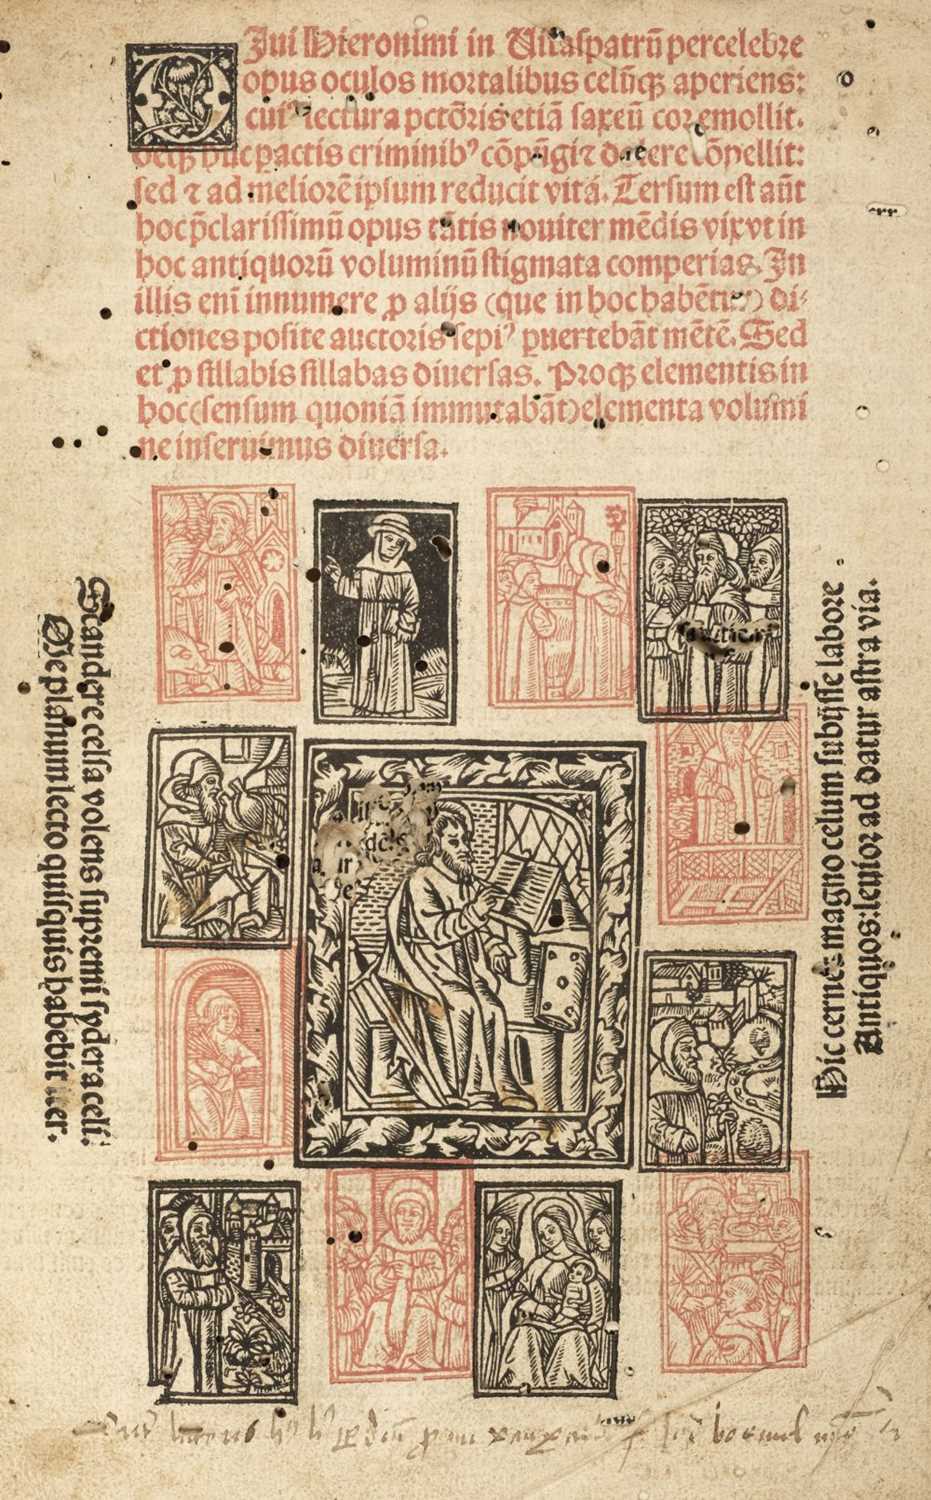 Diui Hieronimi in Uitaspatrũ percelebre
opus oculos mortalibus celũqꝫ aperiens:
cuiꝰ lectura pctõris etiã saxeũ cor emollit.
criminibꝰ cõpũgi⁊ dolere cõpellit:
sed ⁊ ad meliorẽ ipsum reducit vitã. Tersum est aũt
hoc p̃clarissimũ opus tãtis nouiter mẽdis vixvt in
hoc antiquorũ voluminũ stigmata comperias. In
illis eni᷉ innumere ꝓ alijs (que in hoc habẽtur) di⸗
ctiones posite auctoris sepiꝰ ꝑuertebãt mẽtẽ. Sed
et ꝓ sillabis sillabas diuersas. Proqꝫ elementis in
hoc(sensum quoniã immutabãt)elementa volumi
ne inseruimus diuersa.
Scandere celsa volens supremi sydera celi:
Me planum lecto quisquis habebit iter.
Hic cerne: magno celum subijsse labore
Antiquos: leuior ad datur astra via.